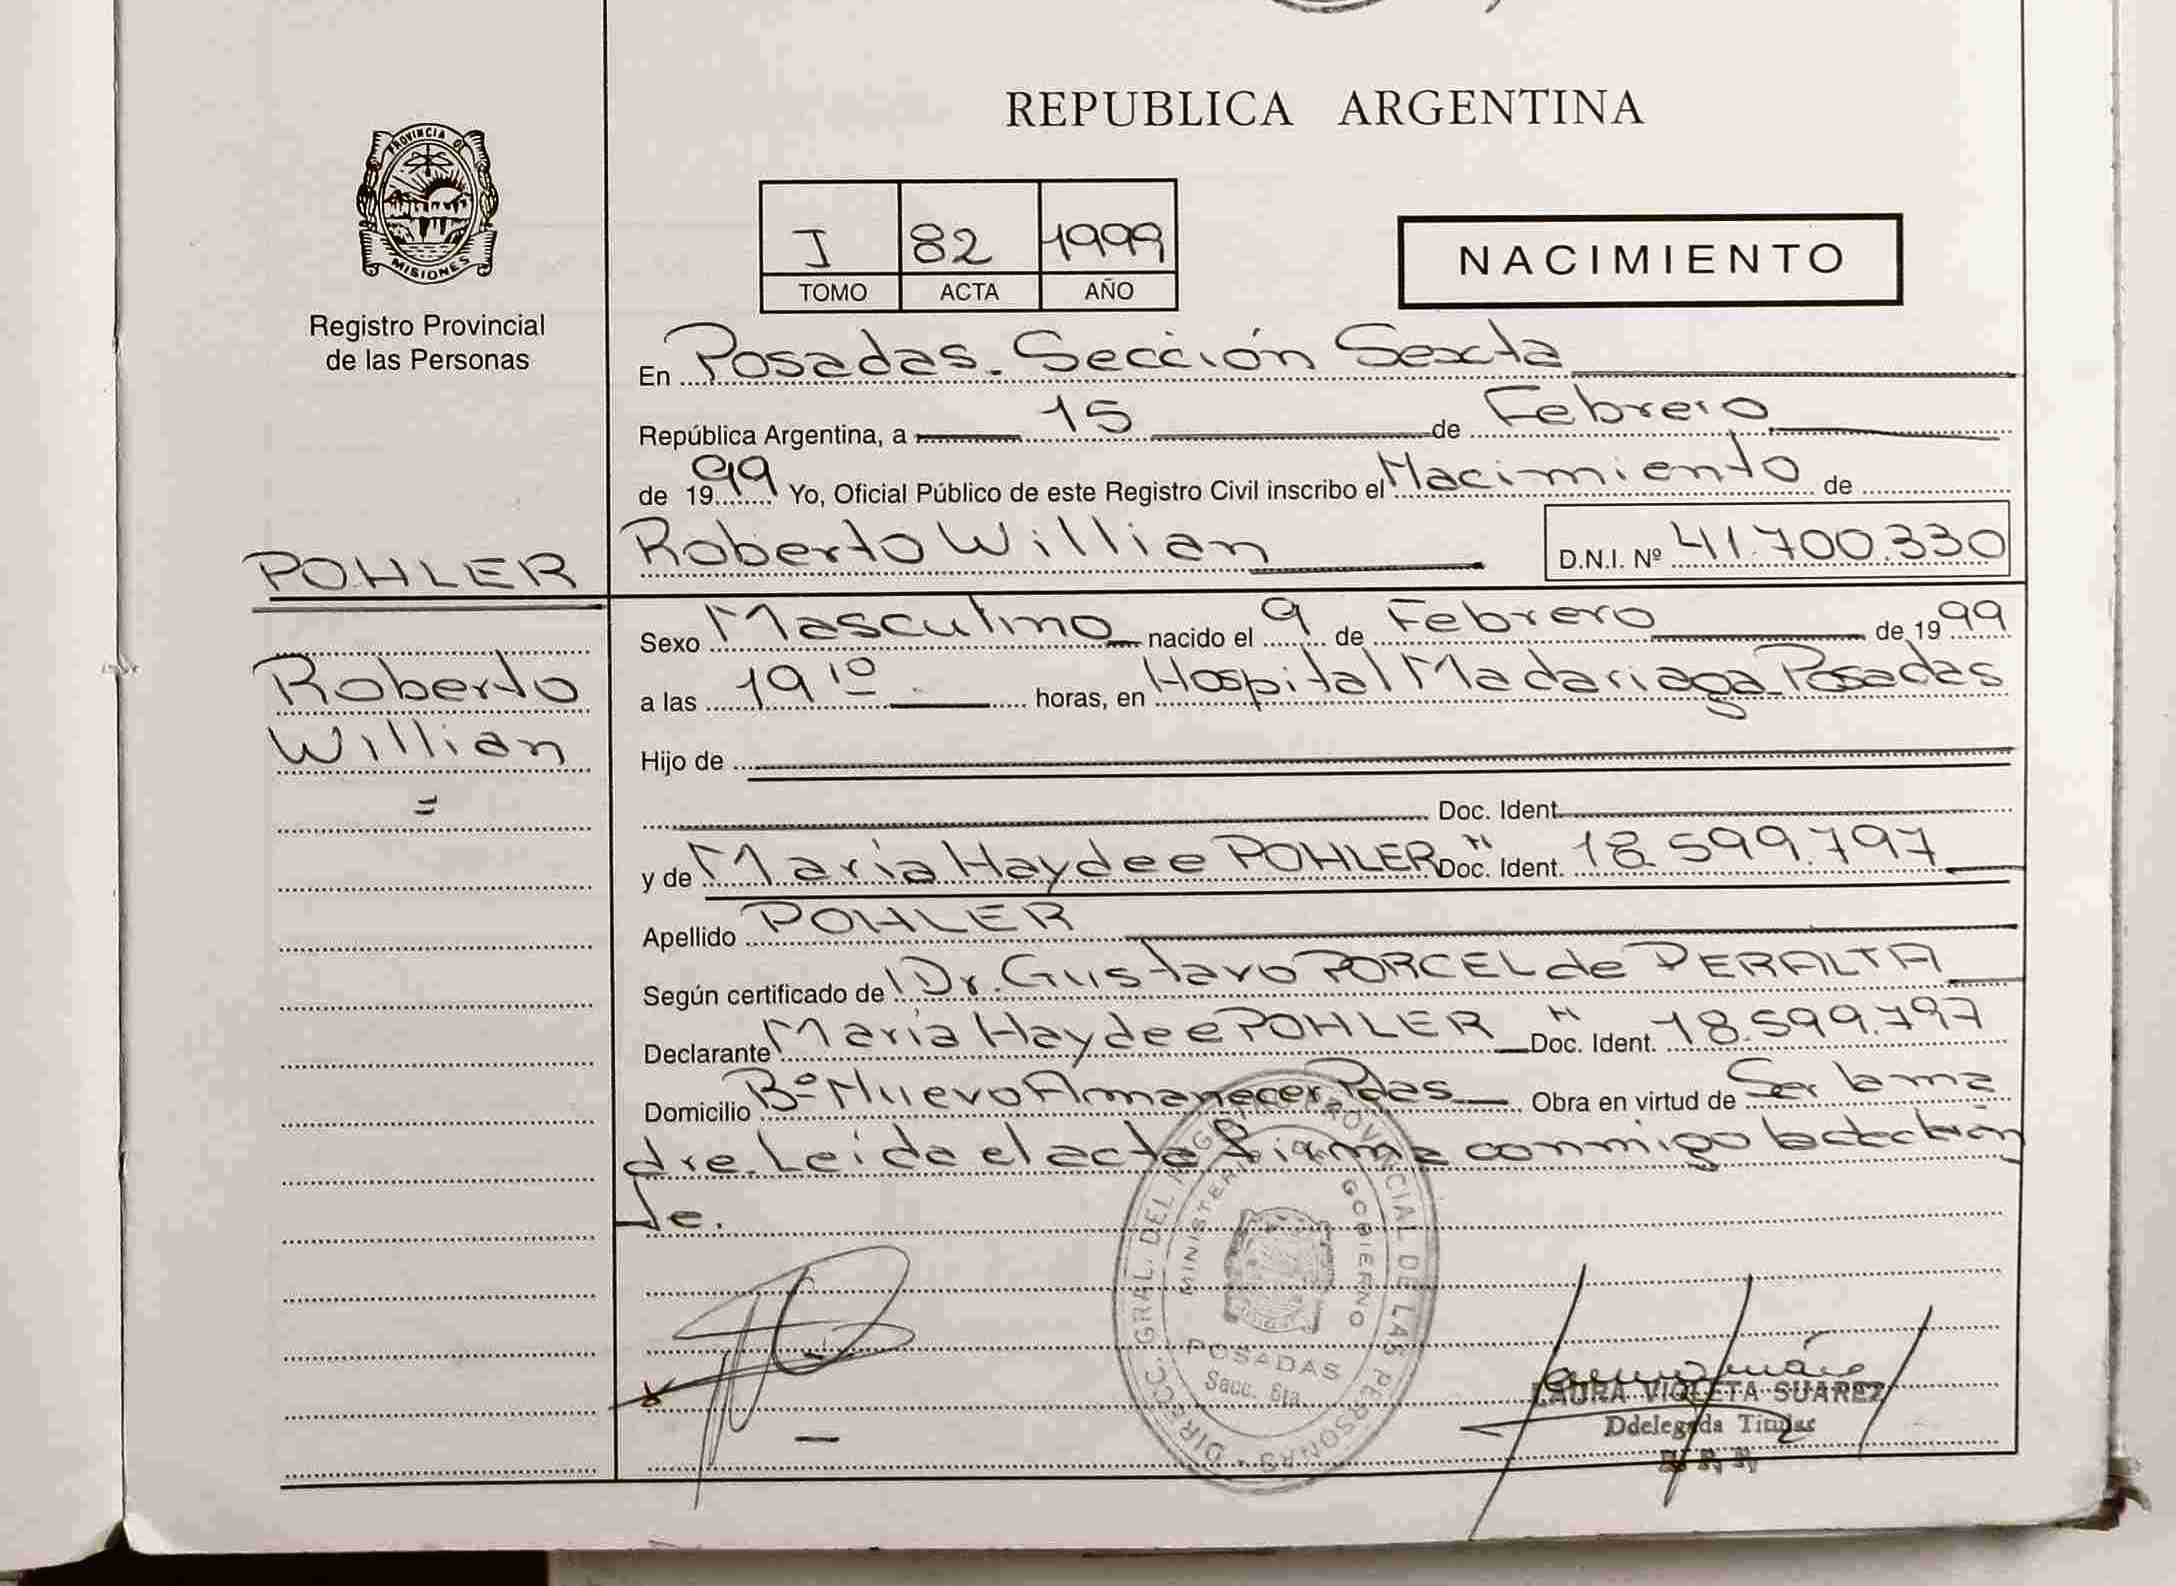 REPUBLICA ARGENTINA
PROVINCIA DE
MISIONES
Registro Provincial
de las Personas
I 82 1999
TOMO ACTA AÑO
NACIMIENTO
En Posadas. Sección Sexta
República Argentina, a 15 de Febrero
de 1999 Yo, Oficial Público de este Registro Civil inscribo el Nacimiento de
POHLER
Roberto Willian D.N.I. Nº 41.700.330
Roberto
Willian
=
Sexo Masculino nacido el 9 de Febrero de 1999
a las 19 10 horas, en Hospital Madariaga Posadas
Hijo de
Doc. Ident.
y de Maria Haydee POHLER Doc. Ident. 18.599.797
Apellido POHLER
Según certificado de Dr. Gustavo PORCEL de PERALTA
Declarante Maria Haydee POHLER Doc. Ident. 18.599.797
Domicilio Bº Nuevo Amanecer Pdas Obra en virtud de Ser la ma
dre. Leida el acta firma conmigo la declaran
te.
DIRECC. GRAL. DEL REG. PROVINCIAL DE LAS PERSONAS
MINISTERIO GOBIERNO
POSADAS
Secc. 6ta.
LAURA VIOLETA SUAREZ
Ddelegada Titular